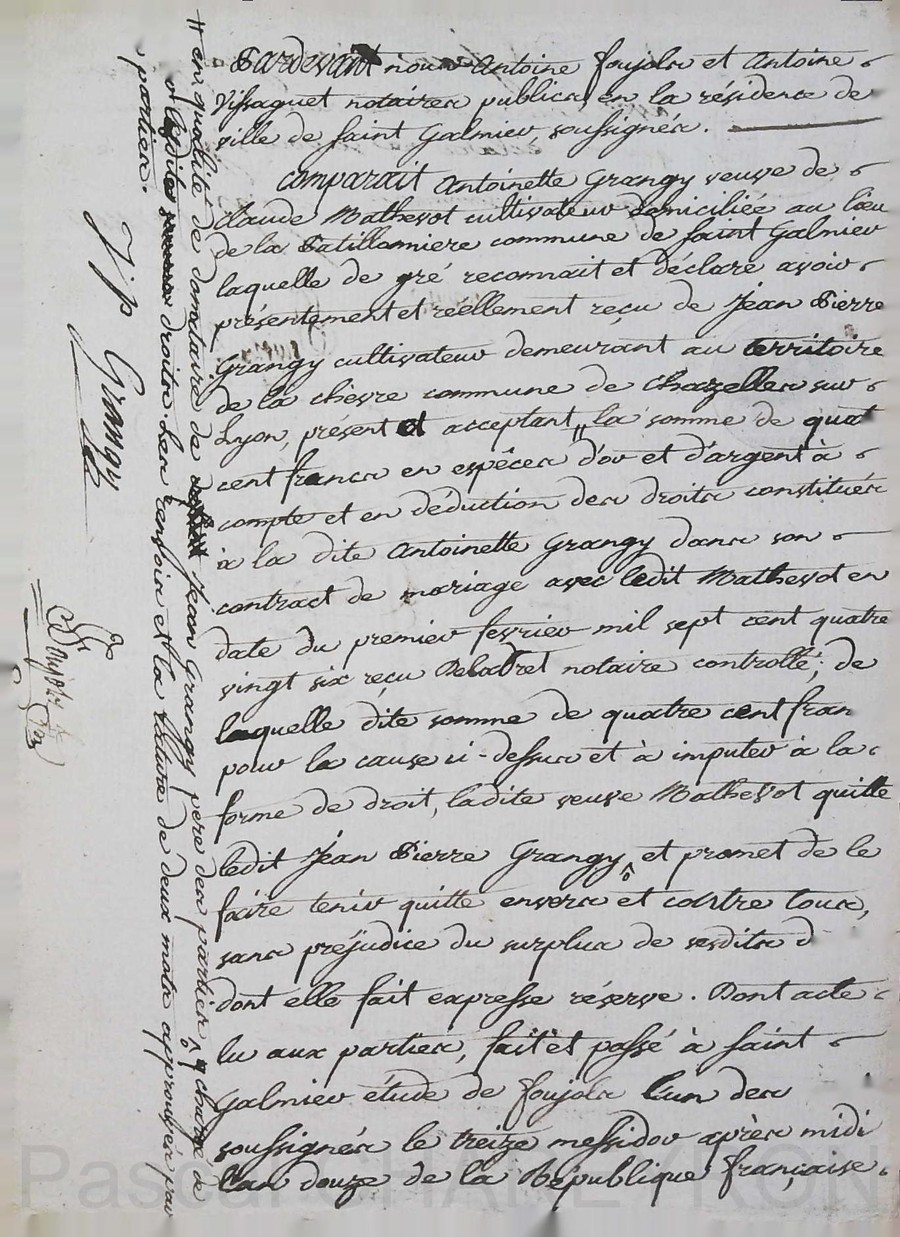 Pardevant nous Antoine Foujols et Antoine
Vissaguet notaires publics en la résidence de
ville de Saint Galmier soussignés.
Comparait Antoinette Grangy veuve de
Claude Mathevot cultivateur domiciliée au lieu
de la Batillonniere commune de Saint Galmier
laquelle de gré reconnait et déclare avoir
présentement et réellement reçu de Jean Pierre
Grangy cultivateur demeurant au territoire
de la chèvre commune de Chazelles sur
Lyon, présent et acceptant, la somme de quat
cent francs en espèces d'or et d'argent à
compte et en déduction des droits constitués
à la dite Antoinette Grangy dans son
contract de mariage avec ledit Mathevot en
date du premier fevrier mil sept cent quatre
vingt six reçu notaire controllé; de
laquelle dite somme de quatre cent fran
pour la cause ci-dessus et à imputer à la
forme de droit, ladite veuve Mathevot quitte
ledit Jean Pierre Grangy et promet de le
faire tenir quitte envers et contre tous,
sans préjudice du surplus de sesdits d
dont elle fait expresse réserve. Dont acte
lu aux parties, fait et passé à Saint
Galmier étude de Foujols l'un des
soussignés le treize messidor après midi
l'an douze de la République française.
en qualité de donataire de Jean Grangy pere des parties chargé de
lesdits droits. Les renvois et la rature de deux mots approuvés par
parties.
J p Grangy
Pascal CHA